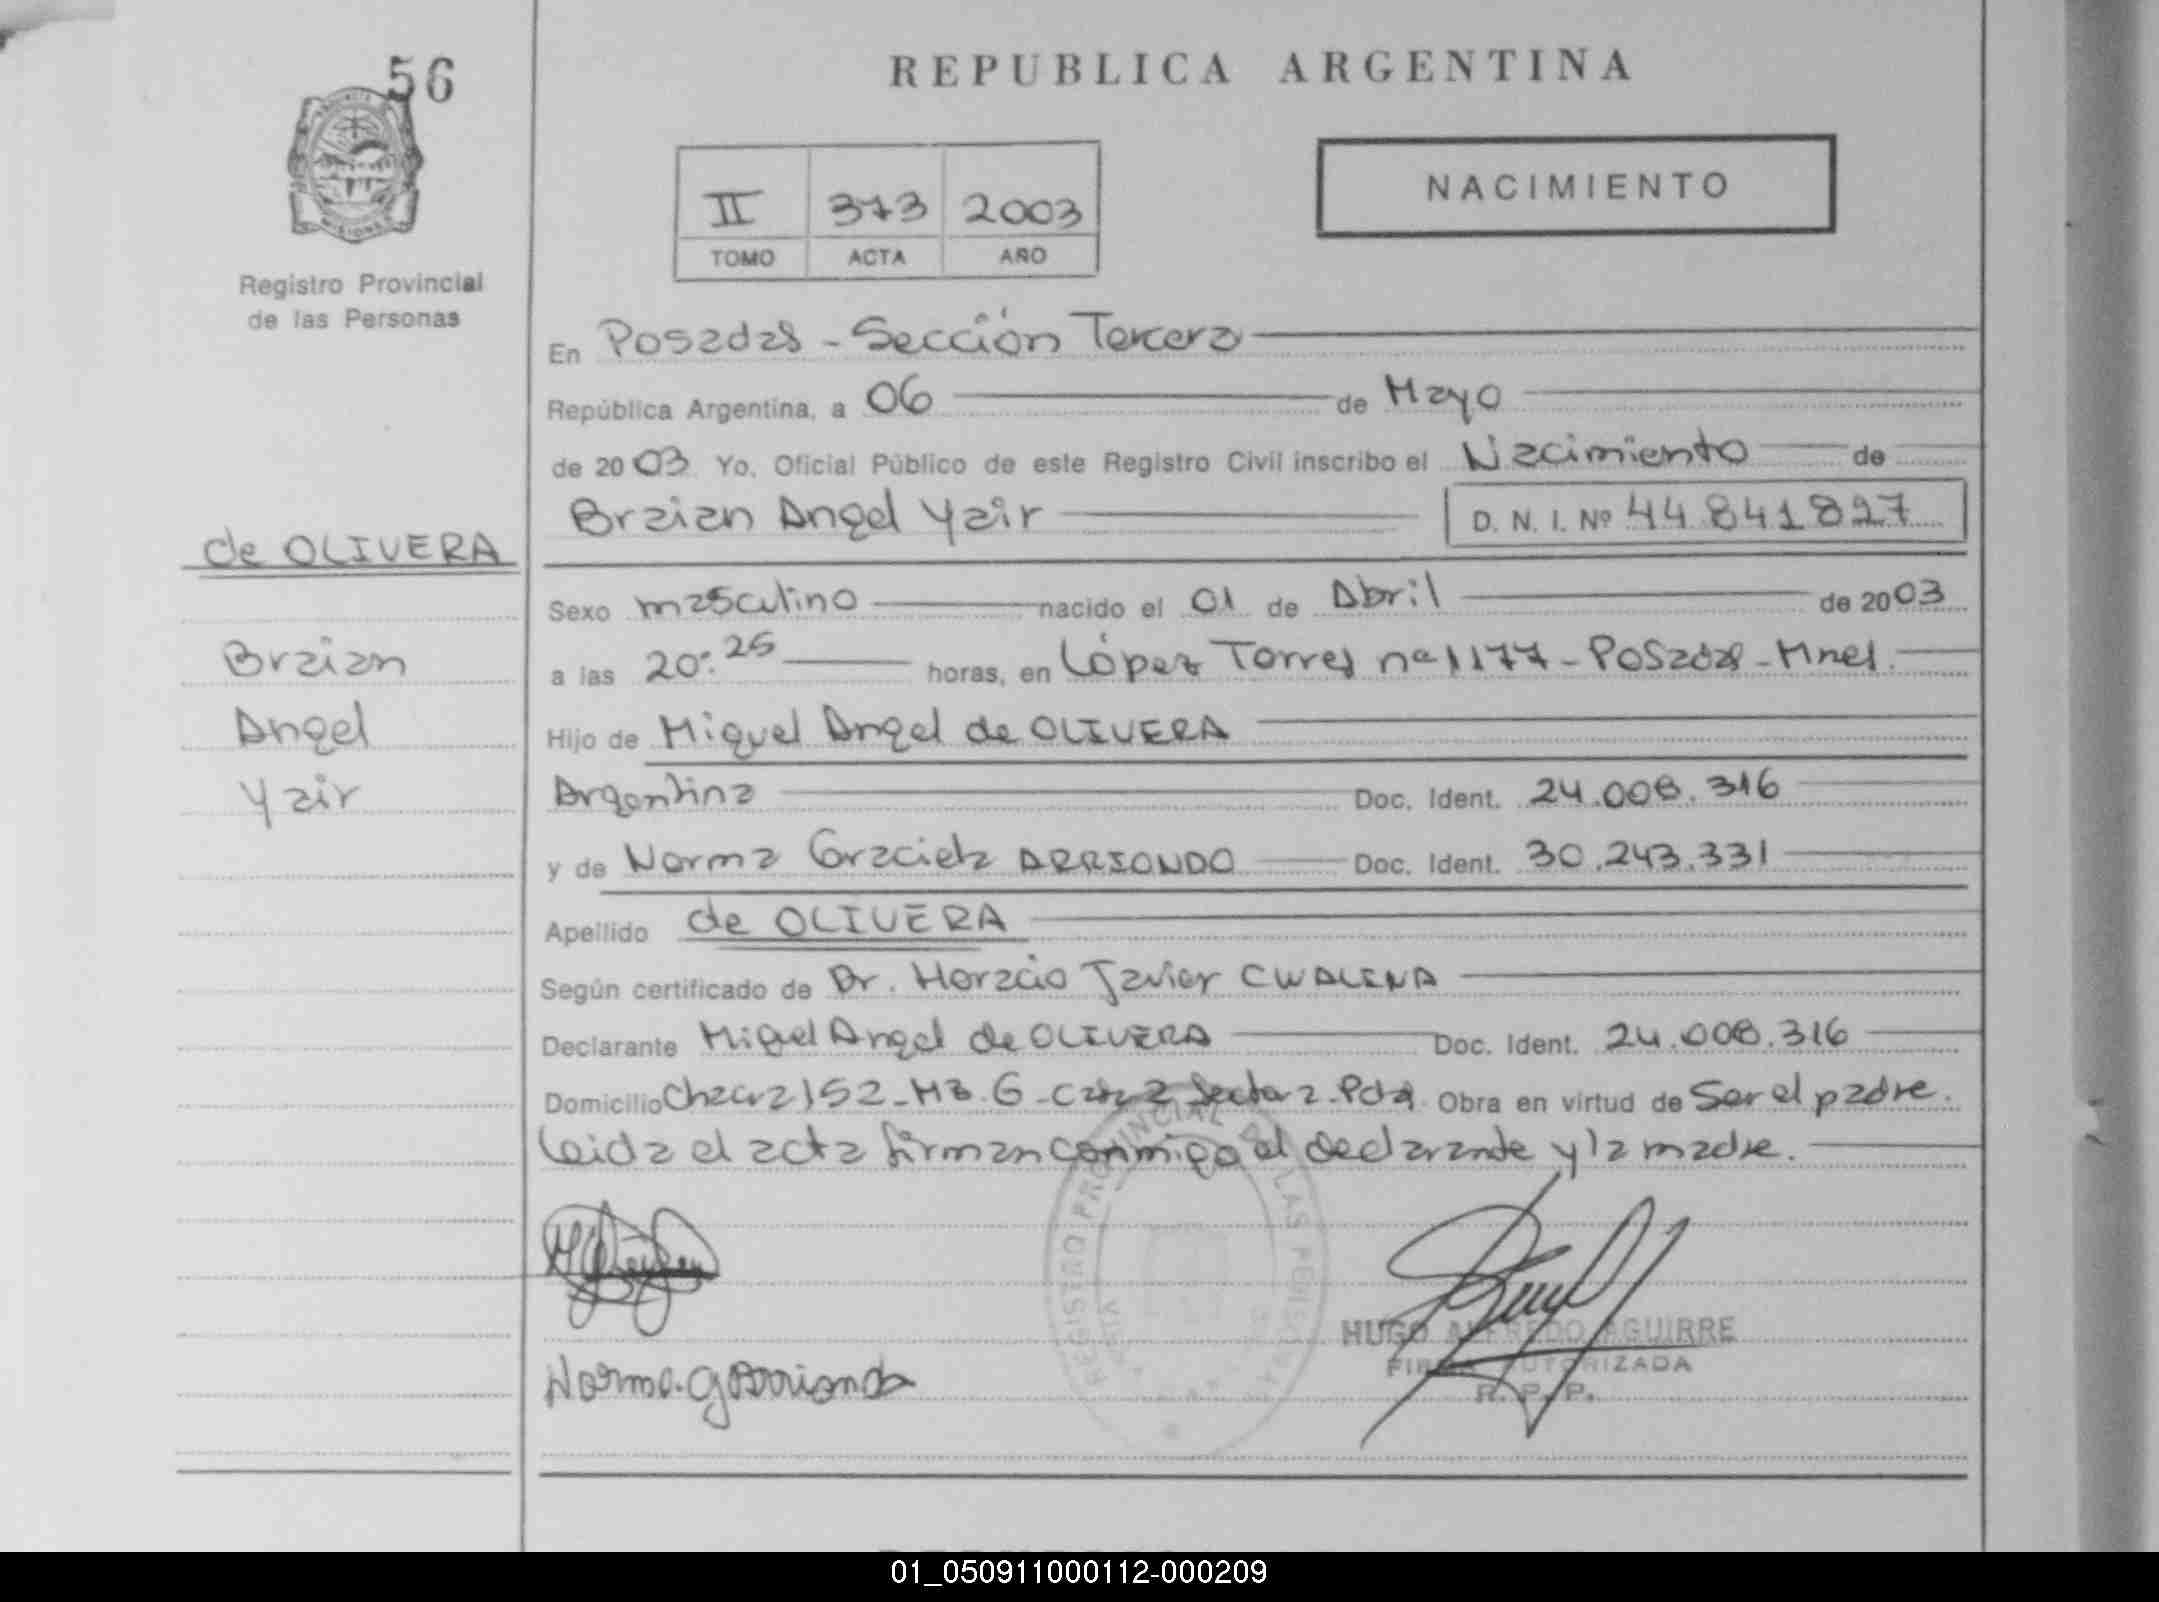 56
REPUBLICA ARGENTINA
II 373 2003
TOMO ACTA AÑO
NACIMIENTO
Registro Provincial
de las Personas
En Posadas - Sección Tercera
República Argentina, a 06 de Mayo
de 2003 Yo, Oficial Público de este Registro Civil inscribo el Nacimiento de
Braian Angel Yair D. N. I. Nº 44.841.827
de OLIVERA
Braian
Angel
Yair
Sexo masculino nacido el 01 de Abril de 2003
a las 20:25 horas, en López Torres nº 1177 - Posadas - Mnes.
Hijo de Miguel Angel de OLIVERA
Argentina Doc. Ident. 24.008.316
y de Norma Graciela ARRIONDO Doc. Ident. 30.243.331
Apellido de OLIVERA
Según certificado de Dr. Horacio Javier CWALINA
Declarante Miguel Angel de OLIVERA Doc. Ident. 24.008.316
Domicilio Chacra 152 - Mz. G - Casa 2 Sector 2 - Pdas. Obra en virtud de Ser el padre.
Leida el acta firman conmigo el declarante y la madre.
REGISTRO PROVINCIAL DE LAS PERSONAS
HUGO ALFREDO AGUIRRE
FIRMA AUTORIZADA
R. P. P.
01_050911000112-000209